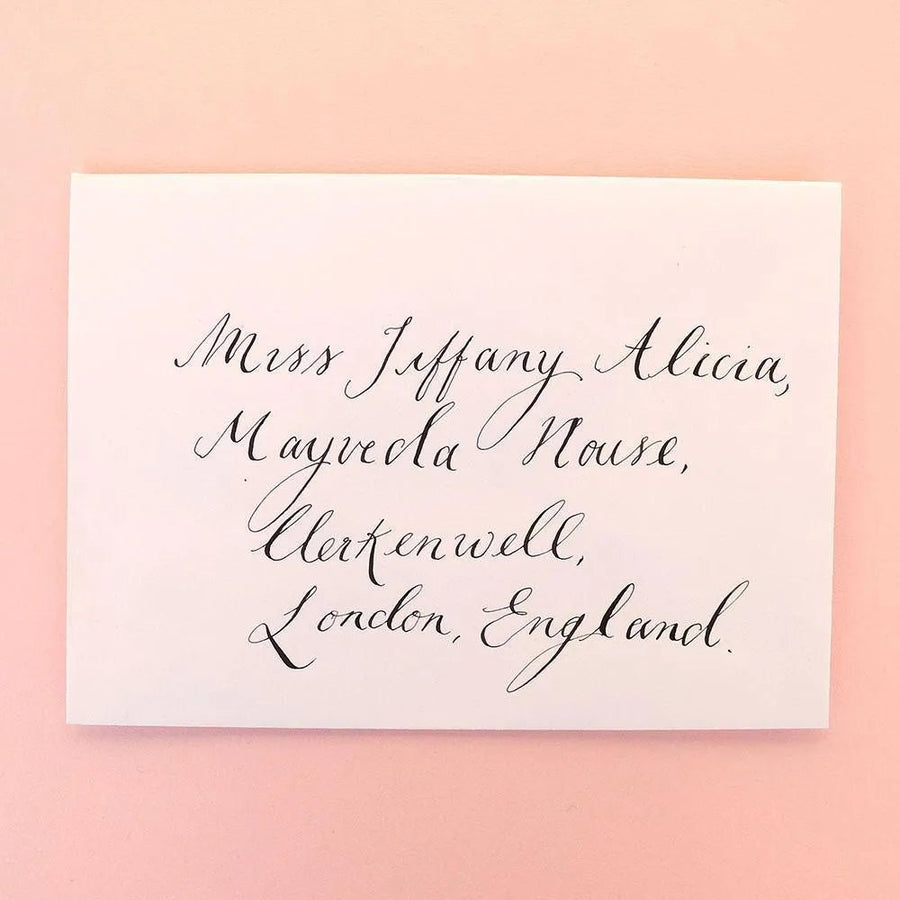 Miss Tiffany Alicia,
Mayveda House,
Clerkenwell,
London, England.